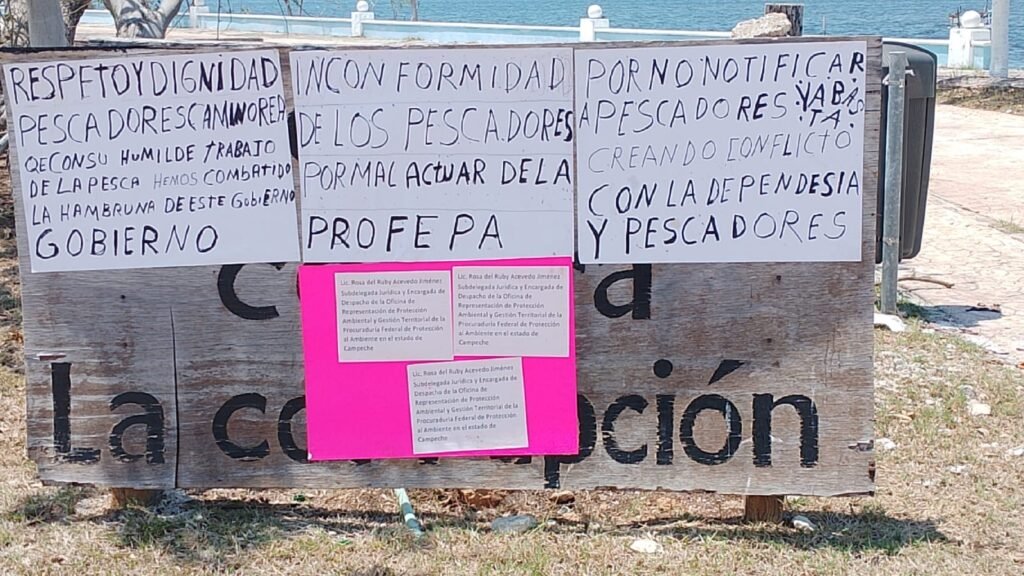 RESPETO Y DIGNIDAD
PESCADORES CAMINOREA
QECONSU HUMILDE TRABAJO
DE LA PESCA HEMOS COMBATIDO
LA HAMBRUNA DE ESTE GOBIERNO
GOBIERNO
INCONFORMIDAD
DE LOS PESCADORES
POR MAL ACTUAR DE LA
PROFEPA
POR NO NOTIFICAR
A PESCADORES YABASTA
CREANDO CONFLICTO
CON LA DEPENDESIA
Y PESCADORES
Lic. Rosa del Ruby Acevedo Jiménez
Subdelegada Jurídica y Encargada de
Despacho de la Oficina de
Representación de Protección
Ambiental y Gestión Territorial de la
Procuraduría Federal de Protección
al Ambiente en el estado de
Campeche
Lic. Rosa del Ruby Acevedo Jiménez
Subdelegada Jurídica y Encargada de
Despacho de la Oficina de
Representación de Protección
Ambiental y Gestión Territorial de la
Procuraduría Federal de Protección
al Ambiente en el estado de
Campeche
Lic. Rosa del Ruby Acevedo Jiménez
Subdelegada Jurídica y Encargada de
Despacho de la Oficina de
Representación de Protección
Ambiental y Gestión Territorial de la
Procuraduría Federal de Protección
al Ambiente en el estado de
Campeche
La